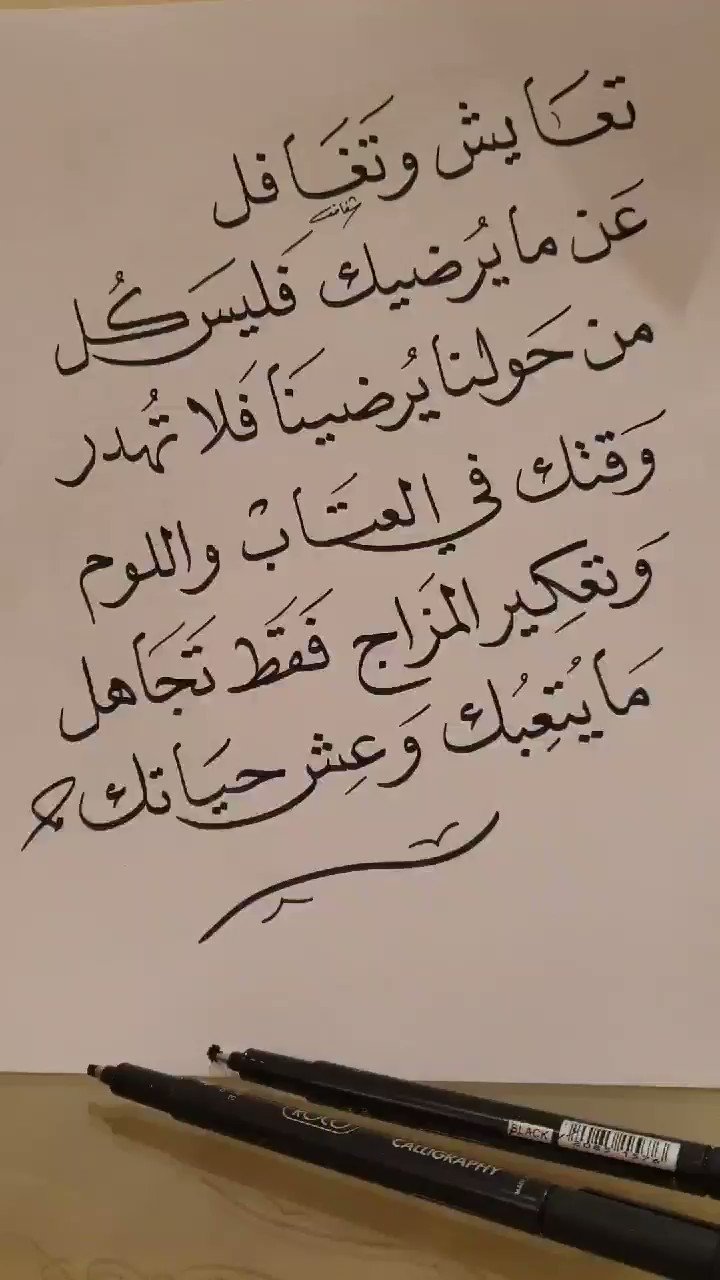 تعَايش وتَغَافل
عَن ما يُرضيك فَليسَ كُل
من حَولنا يُرضينَا فَلا تُهدر
وَقتك في العتَاب واللوم
وَتعكِير المزَاج فَقَط تَجَاهل
مَا يُتعِبُك وَعِش حيَاتك
ROCO
CALLIGRAPHY
BLACK